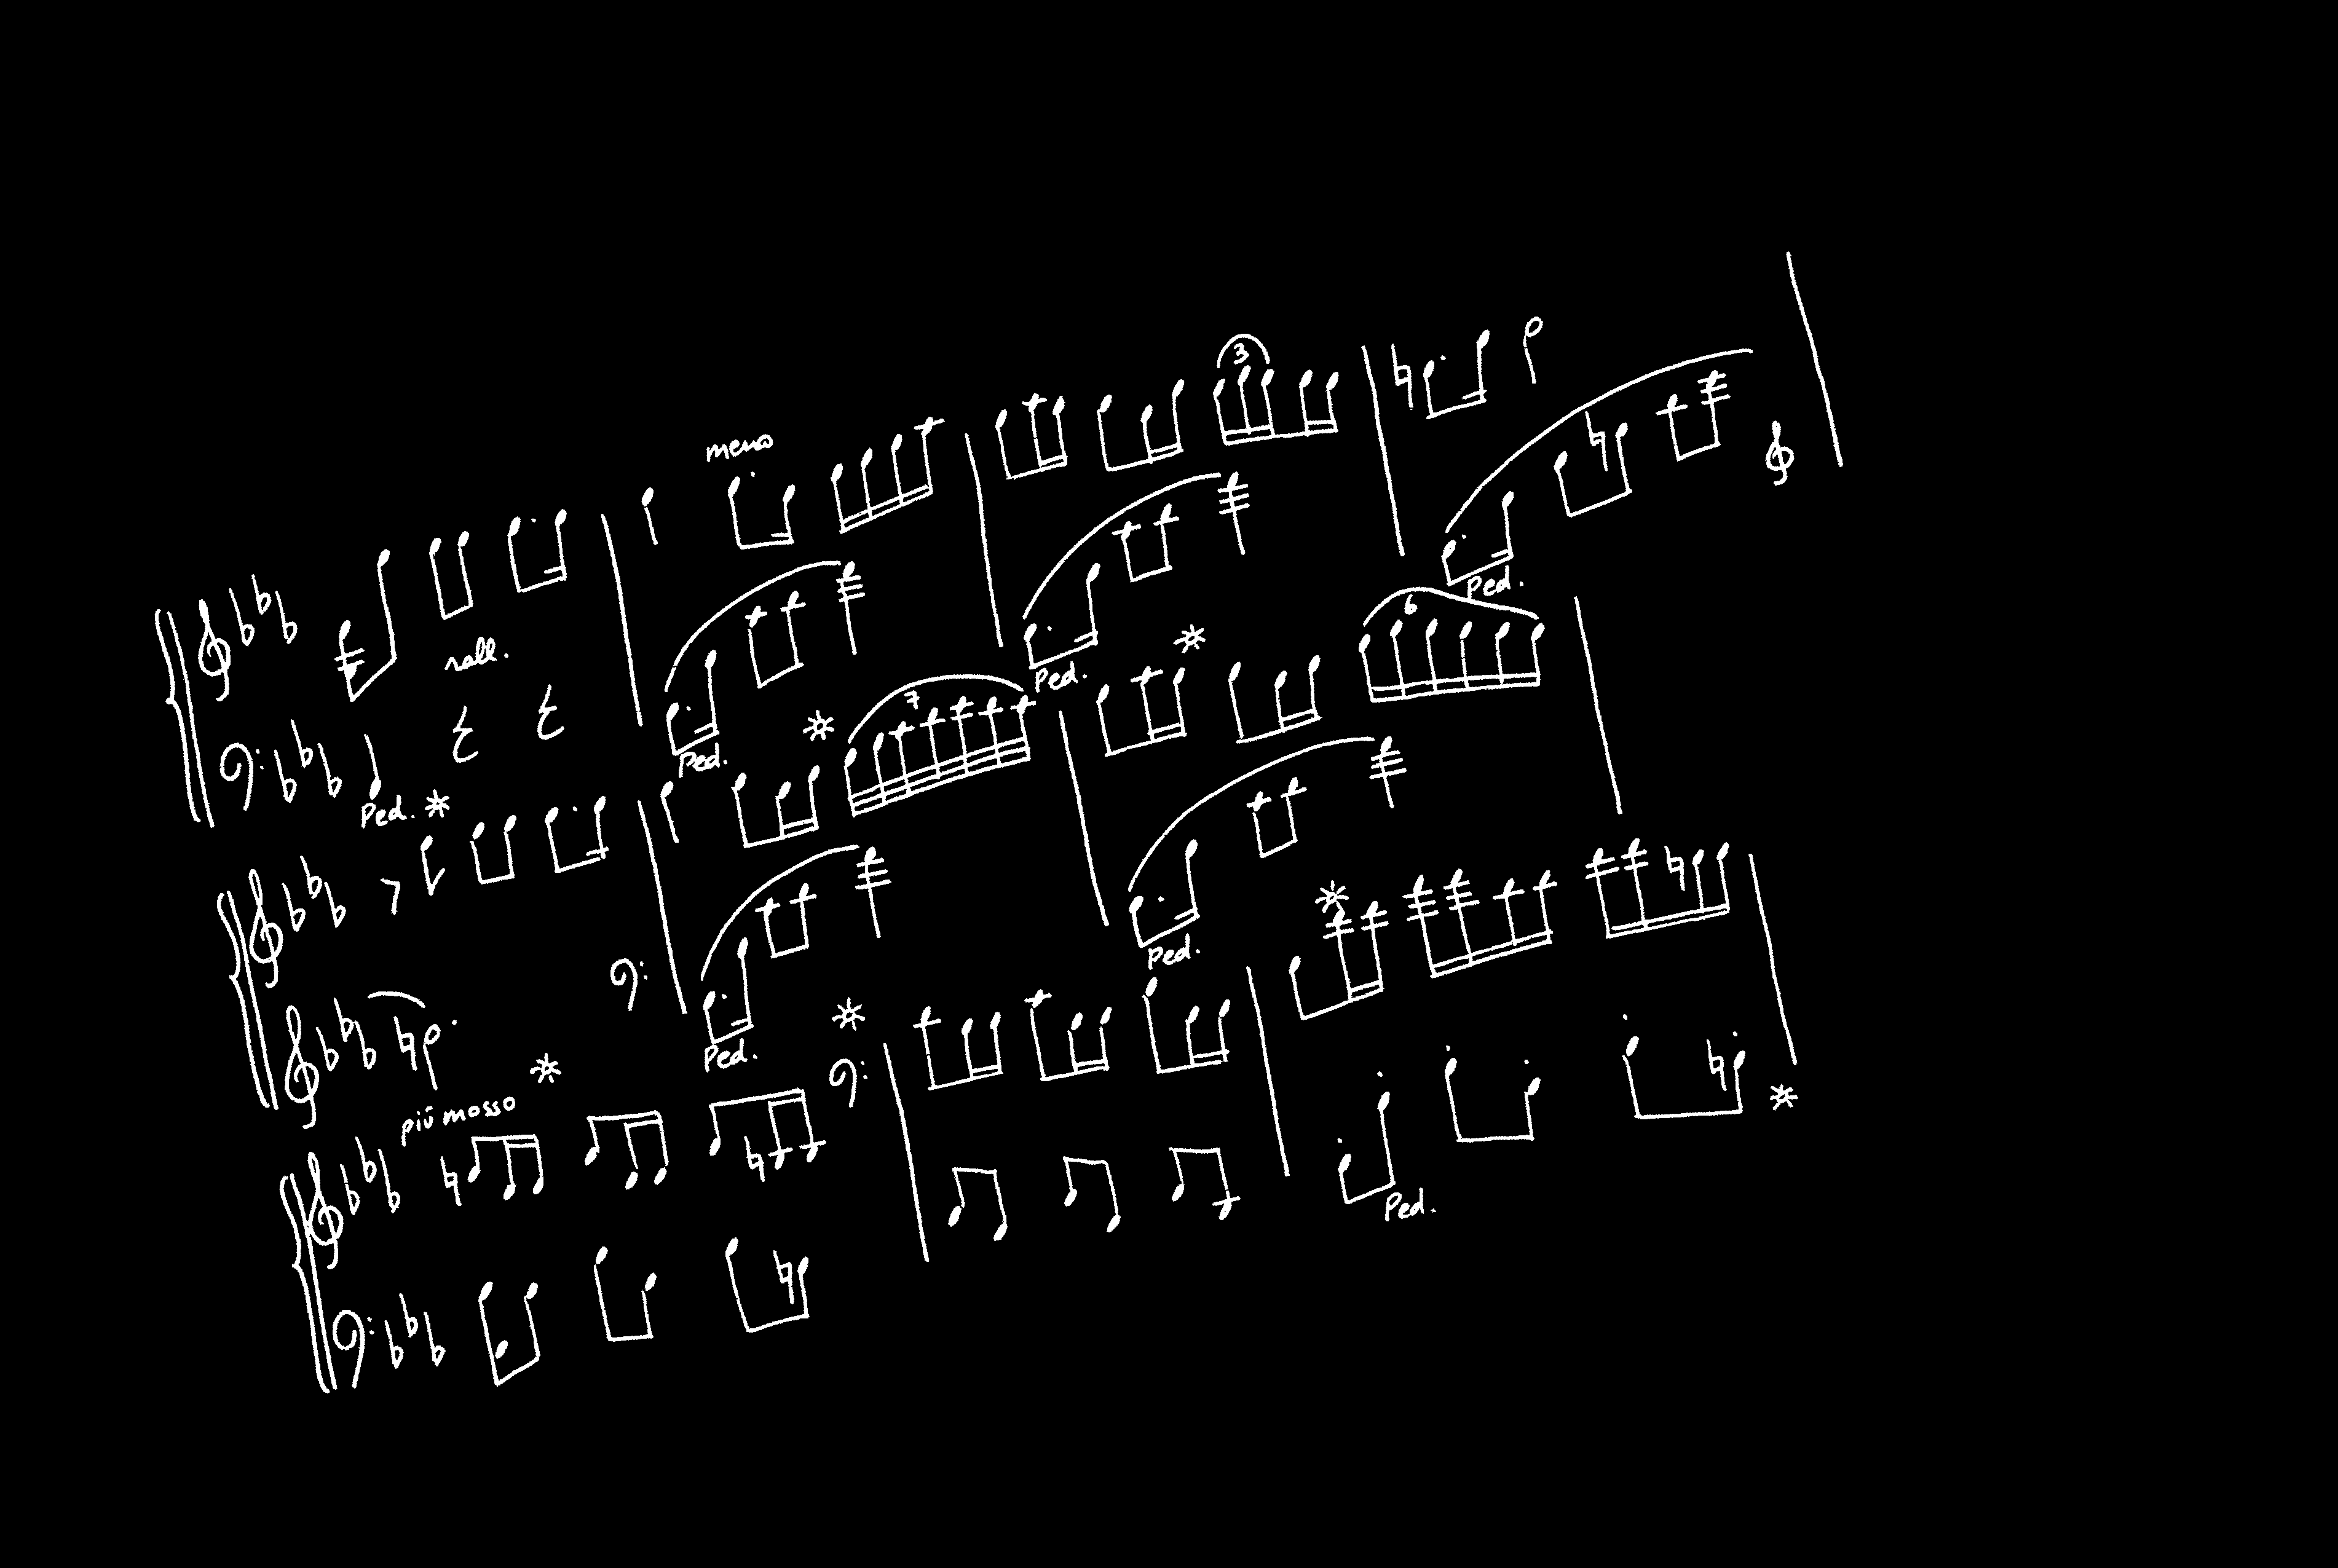 meno
3
rall.
Ped. Ped. Ped. Ped.
7 6
Ped. Ped.
più mosso
Ped.